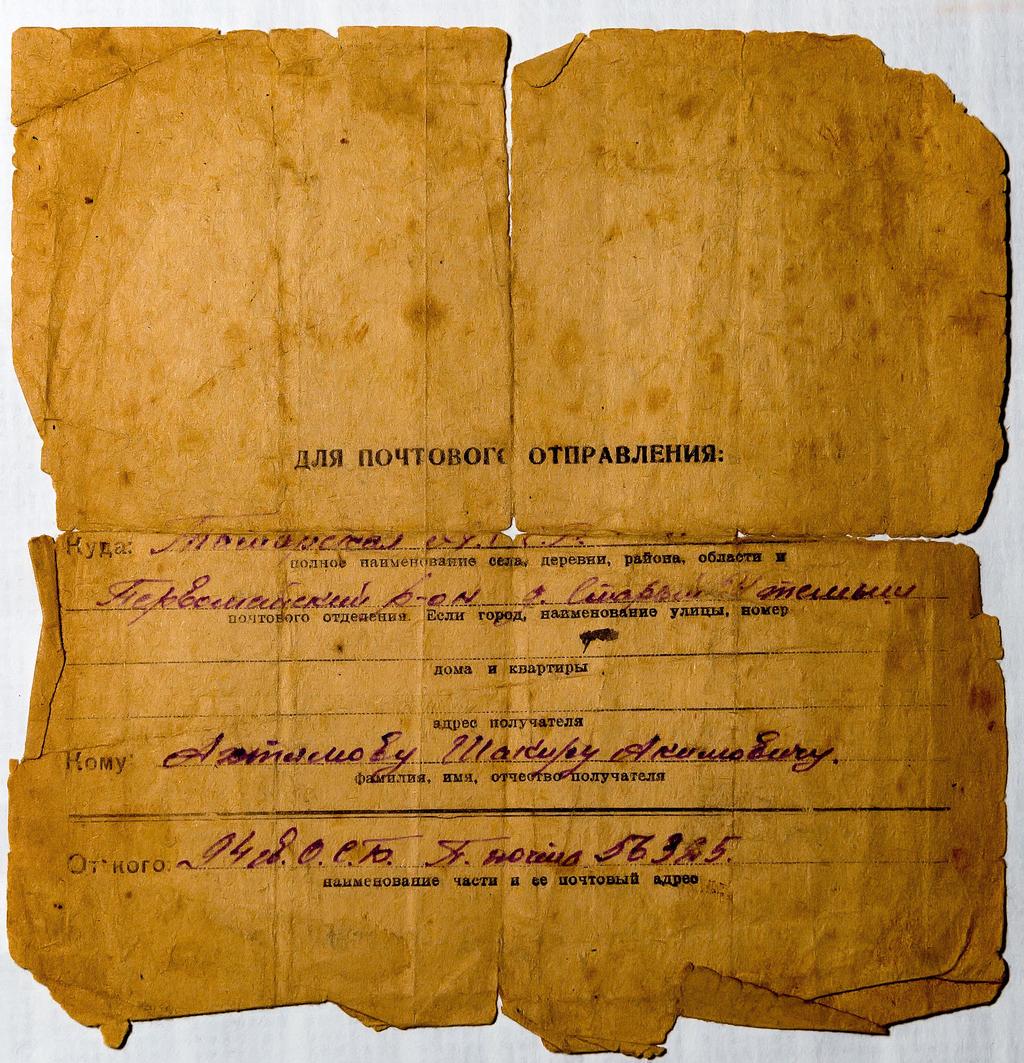 ДЛЯ ПОЧТОВОГО ОТПРАВЛЕНИЯ:
Куда:
полное наименование села, деревни, района, области и
Первомайский р-он д. Старый
почтового отделения. Если город, наименование улицы, номер
дома и квартиры
адрес получателя
Кому: Ахтямову Шакиру Акимовичу.
фамилия, имя, отчество получателя
От кого: П. почта 56325.
наименование части и ее почтовый адрес